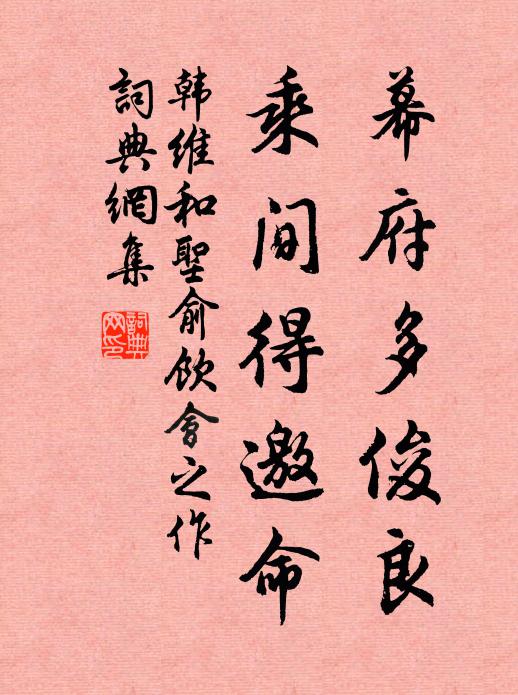 幕府多俊良
乘间得邀命
韩维和聖俞饮會之作
詞典網集
詞典
网印